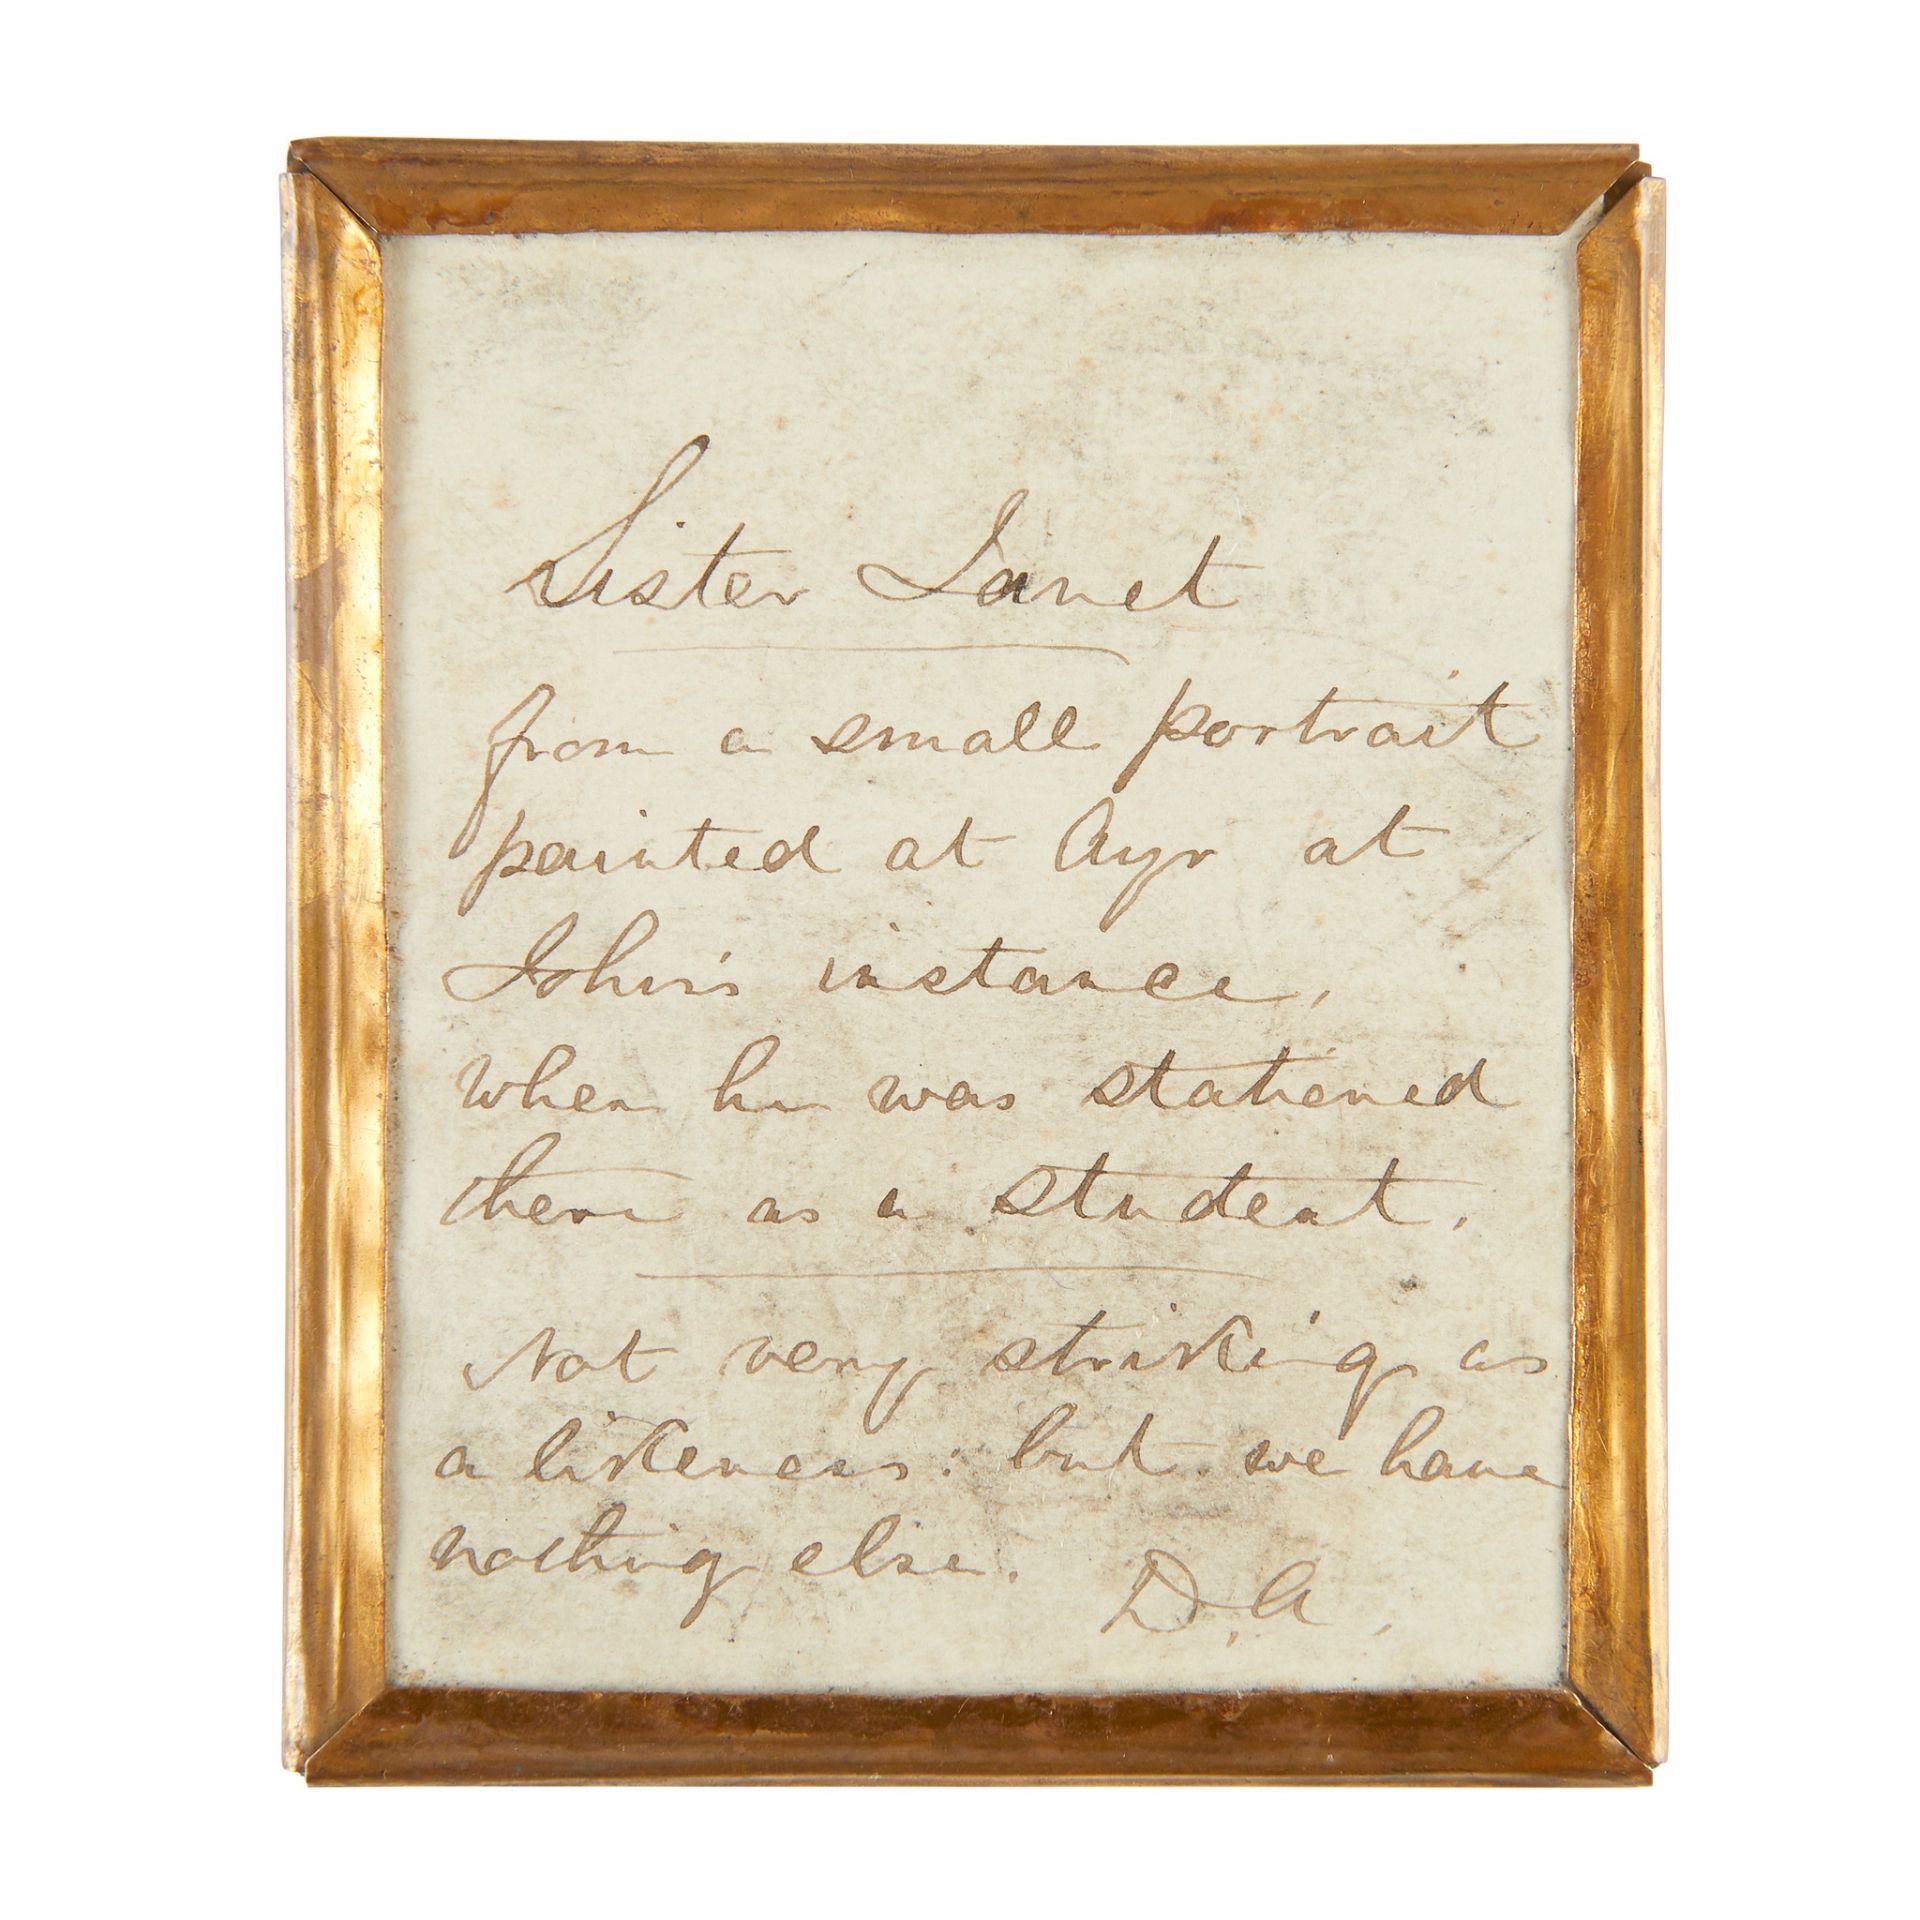 Sister Janet
from a small portrait
painted at Ayr at
John's instance,
when he was stationed
there as a student.
Not very striking as
a likeness: but we have
nothing else.
D. A.